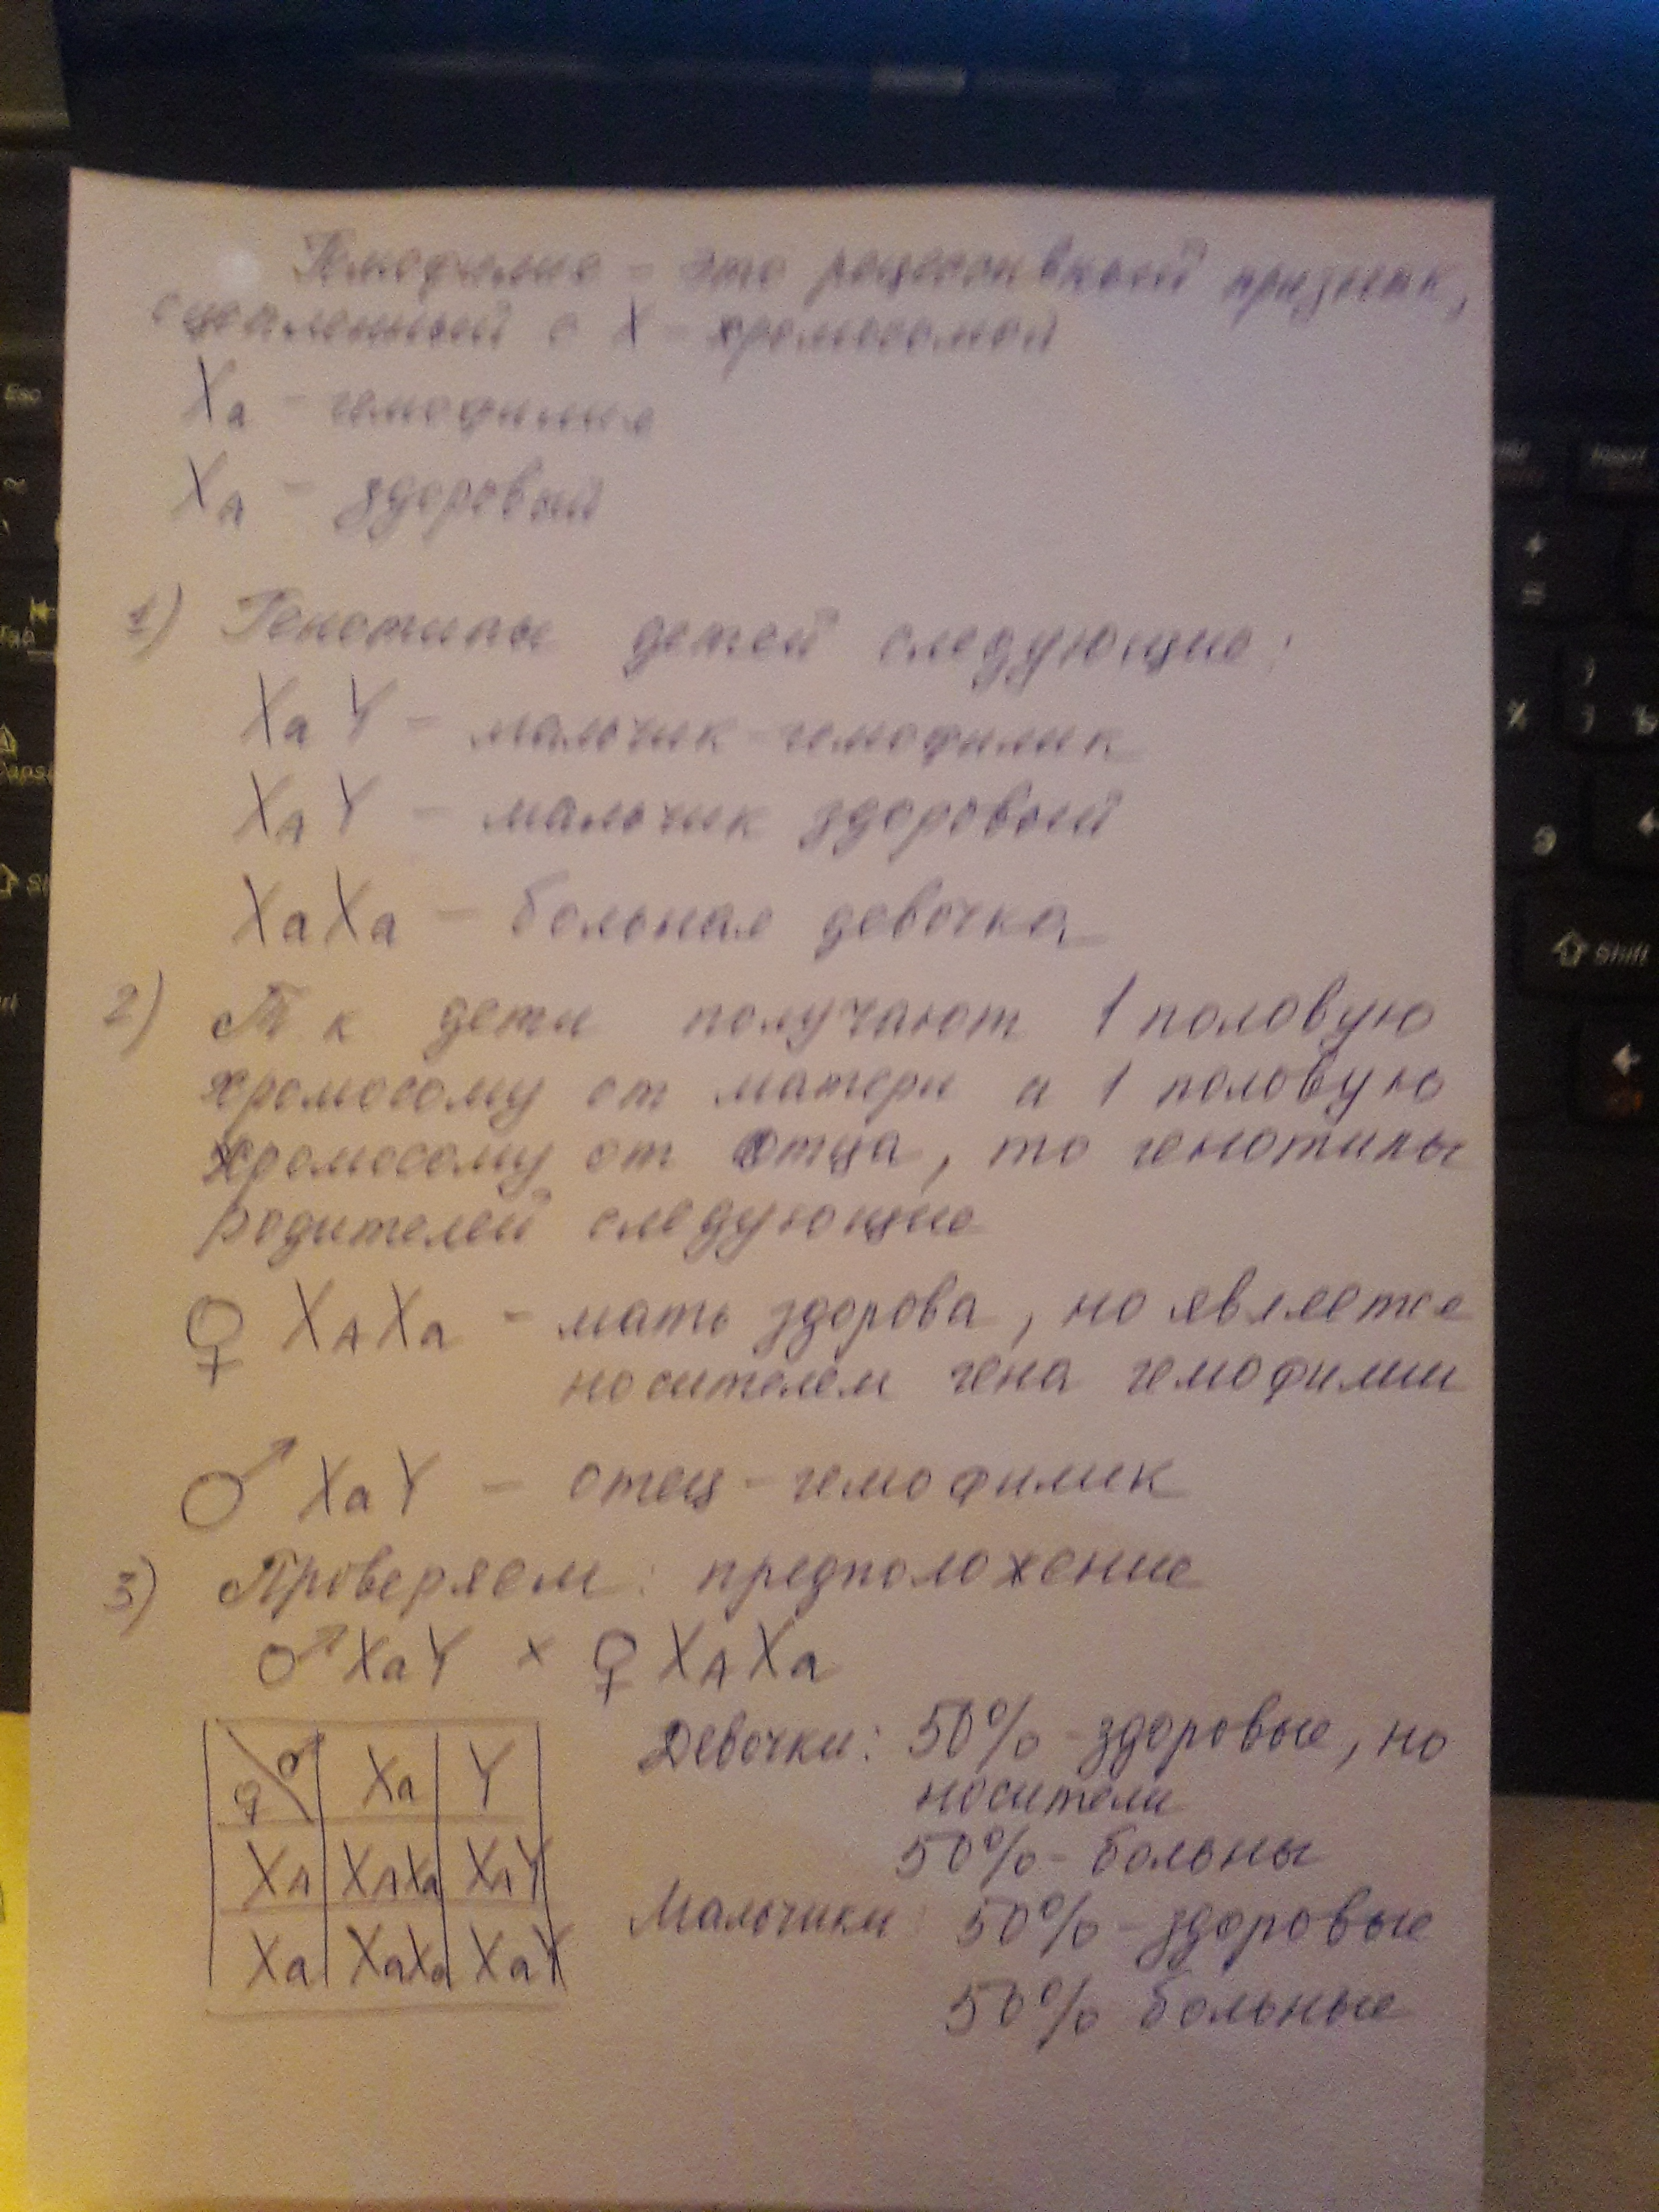 Гемофилия - это рецессивный признак,
сцепленный с X - хромосомой
Xa - гемофилия
XA - здоровый
1) Генотипы детей следующие:
XaY - мальчик-гемофилик
XAY - мальчик здоровый
XaXa - больная девочка
2) Т к дети получают 1 половую
хромосому от матери и 1 половую
хромосому от отца, то генотипы
родителей следующие
♀ XAXa - мать здорова, но является
носителем гена гемофилии
♂ XaY - отец-гемофилик
3) Проверяем: предположение
♂ XaY × ♀ XAXa
Девочки: 50% - здоровые, но
носители
50% - больны
Мальчики: 50% - здоровые
50% больные
♀ \ ♂ Xa Y
XA XAXa XAY
Xa XaXa XaY
Esc
Tab
Caps
Insert
+
=
Х
Ъ
Э
Shift